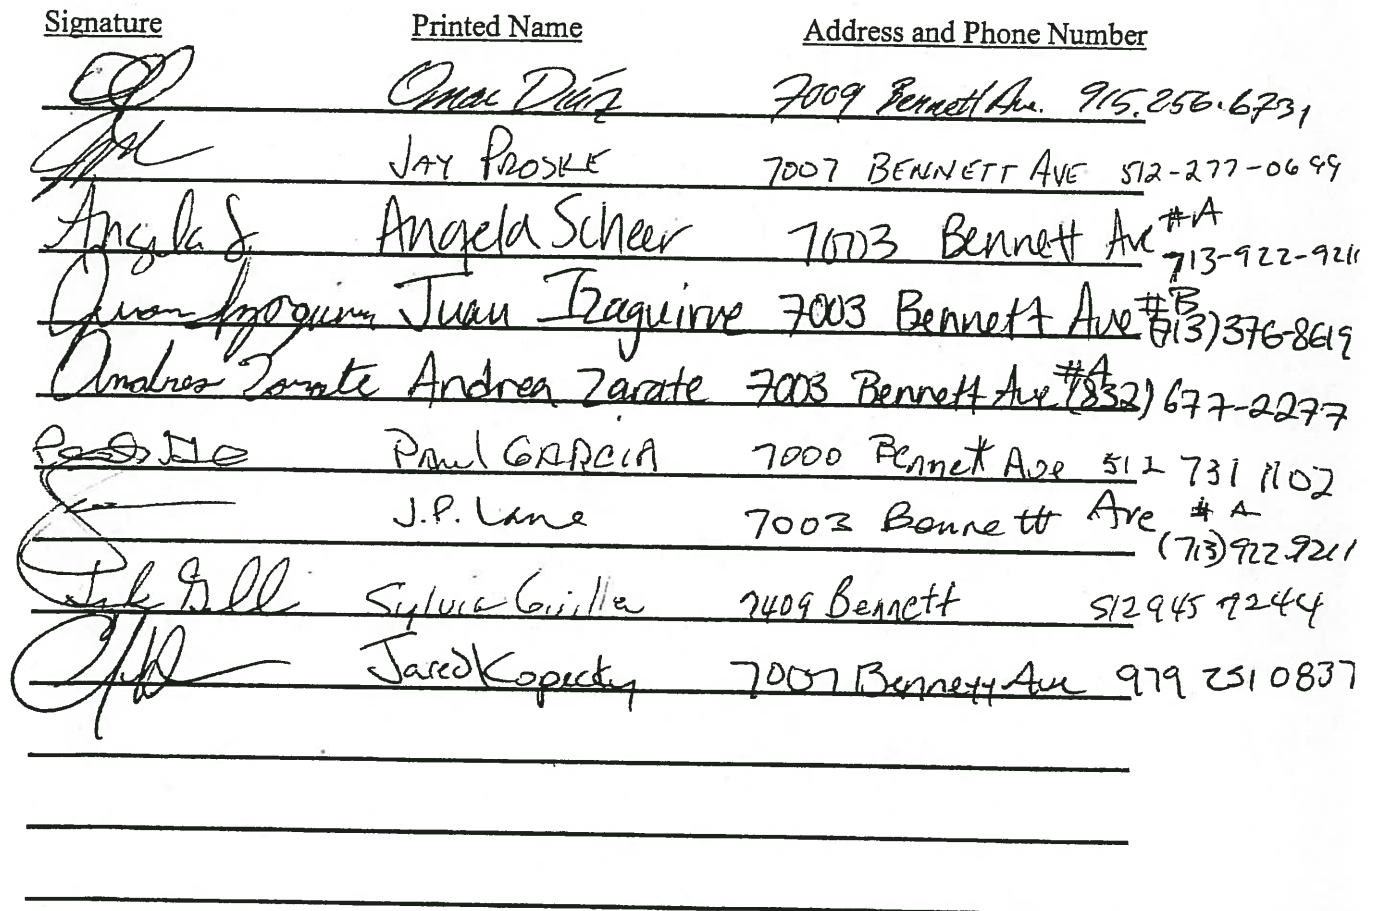 Signature Printed Name Address and Phone Number
Omar Diaz 7009 Bennett Ave. 915.256.6731
JAY PROSKE 7007 BENNETT AVE 512-277-0699
Angela S. Angela Scheer 7003 Bennett Ave #A 713-922-9211
Juan Izaguirre Juan Izaguirre 7003 Bennett Ave #B (713)376-8619
Andrea Zarate Andrea Zarate 7003 Bennett Ave #A (832) 677-2277
PAul GARCIA 7000 Bennett Ave 512 731 1102
J.P. Lane 7003 Bennett Ave # A (713)922.9211
Sylvia 7409 Bennett 512 945 9244
Jared Kopecky 7007 Bennett Ave 979 251 0837